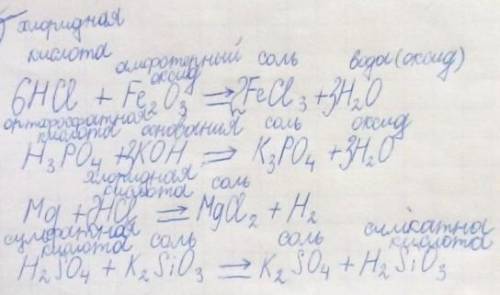 хлоридная
кислота амфотерный оксид соль вода (оксид)
6HCl + Fe₂O₃ = 2FeCl₃ + 3H₂O
ортофосфатная кислота основания соль оксид
H₃PO₄ + 3KOH = K₃PO₄ + 3H₂O
хлоридная кислота соль
Mg + 2HCl = MgCl₂ + H₂
сульфатная кислота соль соль силікатна кислота
H₂SO₄ + K₂SiO₃ = K₂SO₄ + H₂SiO₃